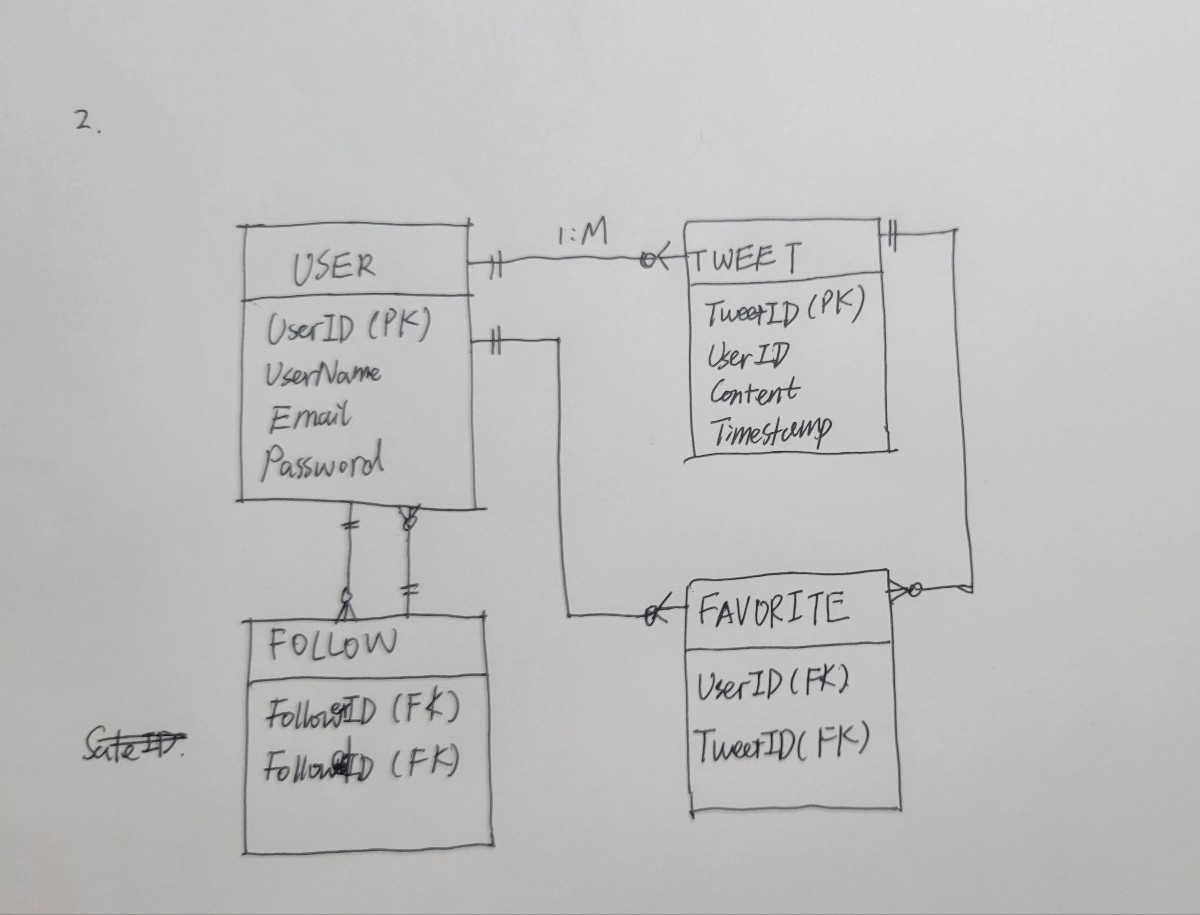 2.
USER
UserID (PK)
UserName
Email
Password
1:M
TWEET
TweetID (PK)
UserID
Content
Timestamp
FOLLOW
(FK)
(FK)
FAVORITE
UserID (FK)
TweetID (FK)